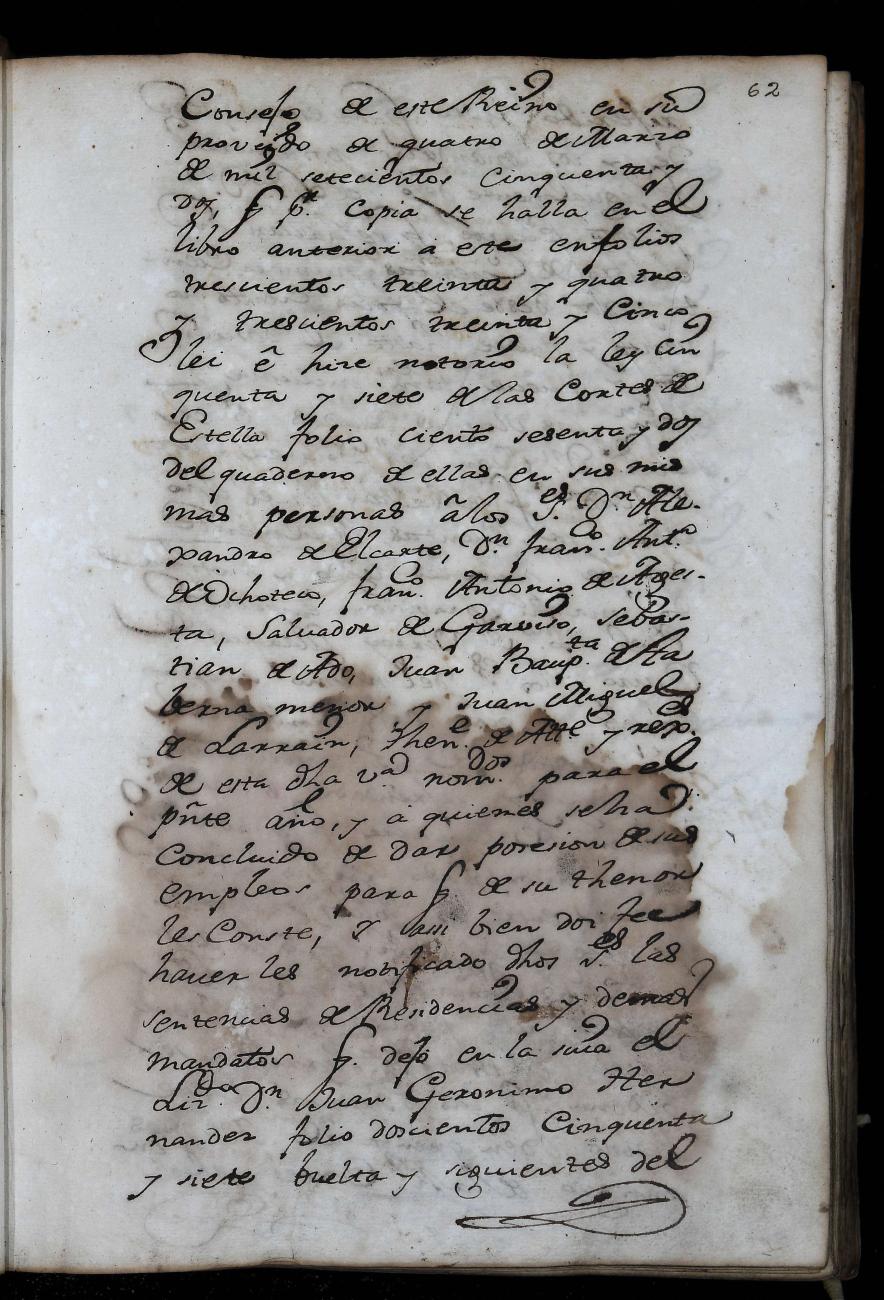 62
Consejo de este Reino en su
proveido de quatro de Marzo
de mil setecientos cinquenta y
dos, q̃ pr. copia se halla en el
libro anterior a este enfolios
trescientos treinta y quatro
y trescientos treinta y Cinco,
lei ê hize notorio la ley Cin
quenta y siete de las Cortes de
Estella folio ciento sesenta y dos
del quaderno de ellas en sus mis
mas personas â los Ses. Dn. Ale-
xandro de Elcarte, Dn. Franco. Anto.
de Ochoteco, franco. Antonio de Azes-
ta, Salvador de Garviso, sebas-
tian de Ado, Juan Baupta. de ta
berna menor y Juan Miguel
de Larrain, thene. de Alte y rexes.
de esta dha va nomdos. para el
pñte año, y a quienes se ha
Concluido de dar posesion de sus
empleos para q̃. de su thenor
les Conste, Y assi bien doi fee
hauer les notificado dhos Ses. las
sentencias de Residencias y demas
mandatos q̃. dejó en la suia el
Lizdo. Dn Juan Geronimo Her
nandez folio doscientos Cinquenta
y siete buelta y siguientes del